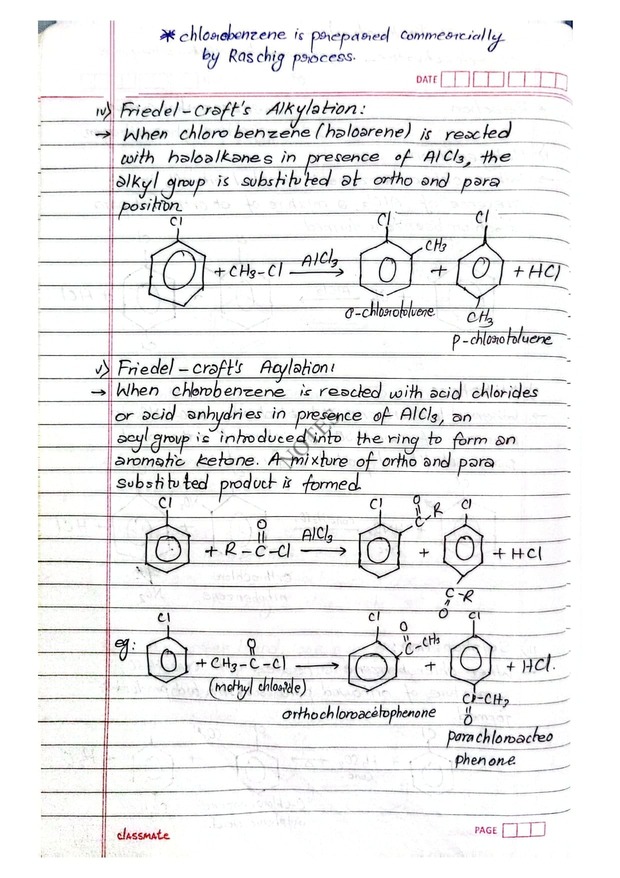 * chlorobenzene is prepared commercially
by Raschig process.
DATE
iv) Friedel-craft's Alkylation:
→ When chlorobenzene (haloarene) is reacted
with haloalkanes in presence of AlCl3, the
alkyl group is substituted at ortho and para
position
Cl Cl Cl
+ CH3-Cl AlCl3 → CH3 + + HCl
o-chlorotoluene CH3
p-chlorotoluene
v) Friedel-craft's Acylation:
→ When chlorobenzene is reacted with acid chlorides
or acid anhydries in presence of AlCl3, an
acyl group is introduced into the ring to form an
aromatic ketone. A mixture of ortho and para
substituted product is formed.
NOTES
Cl O Cl O Cl
+ R-C-Cl AlCl3 → C-R + + HCl
C-R
O
Cl O Cl O Cl
eg: + CH3-C-Cl → C-CH3 + + HCl.
(methyl chloride) C-CH3
orthochloroacetophenone O
parachloroacteo
phenone
classmate
PAGE